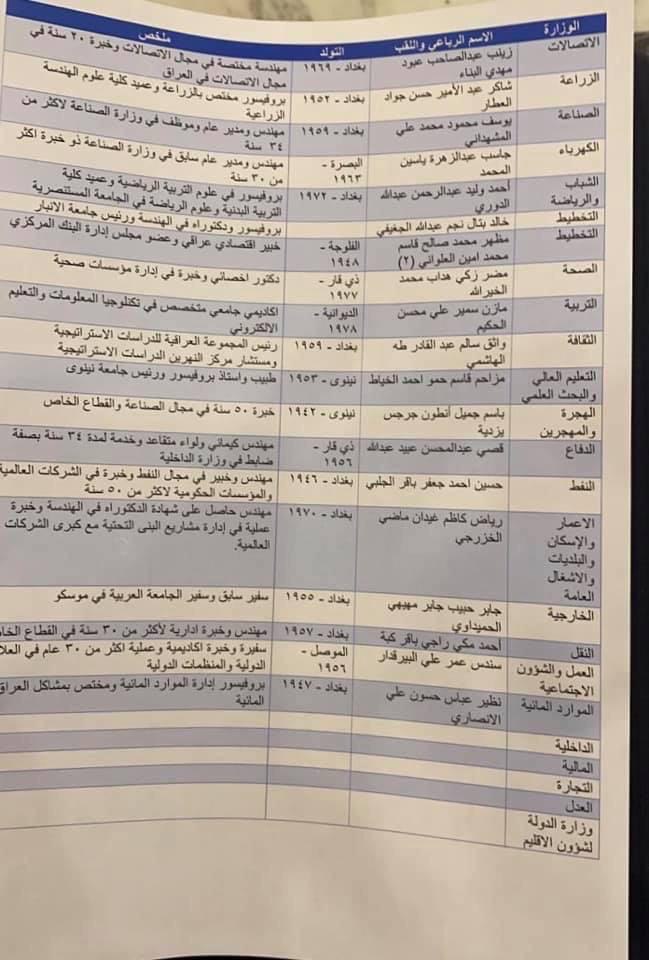 الوزارة	الاسم الرباعي واللقب	التولد	ملخص
الاتصالات	زينب عبدالصاحب عبود	بغداد - ١٩٦٩	مهندسة مختصة في مجال الاتصالات وخبرة ٢٠ سنة في
مهدي البناء	مجال الاتصالات في العراق
الزراعة	شاكر عبد الأمير حسن جواد	بغداد - ١٩٥٢	بروفيسور مختص بالزراعة وعميد كلية علوم الهندسة
العطار	الزراعية
الصناعة	يوسف محمود محمد علي	بغداد - ١٩٥٩	مهندس ومدير عام وموظف في وزارة الصناعة لاكثر من
المشهداني	٣٤ سنة
الكهرباء	جاسب عبدالزهرة ياسين	البصرة -	مهندس ومدير عام سابق في وزارة الصناعة ذو خبرة اكثر
المحمد	١٩٦٣	من ٣٠ سنة
الشباب	أحمد وليد عبدالرحمن عبدالله	بغداد - ١٩٧٢	بروفيسور في علوم التربية الرياضية وعميد كلية
والرياضة	الدوري	التربية البدنية وعلوم الرياضة في الجامعة المستنصرية
التخطيط	خالد بتال نجم عبدالله الجغيفي	بروفيسور ودكتوراه في الهندسة ورئيس جامعة الانبار
التخطيط	مظهر محمد صالح قاسم	الفلوجة -	خبير اقتصادي عراقي وعضو مجلس إدارة البنك المركزي
محمد امين العلواني (٢)	١٩٤٨
الصحة	مضر زكي هداب محمد	ذي قار -	دكتور اخصائي وخبرة في إدارة مؤسسات صحية
الخيرالله	١٩٧٧
التربية	مازن سمير علي محسن	الديوانية -	اكاديمي جامعي متخصص في تكنلوجيا المعلومات والتعليم
الحكيم	١٩٧٨	الالكتروني
الثقافة	واثق سالم عبد القادر طه	بغداد - ١٩٥٩	رئيس المجموعة العراقية للدراسات الاستراتيجية
الهاشمي	ومستشار مركز النهرين الدراسات الاستراتيجية
التعليم العالي	مزاحم قاسم حمو احمد الخياط	نينوى - ١٩٥٣	طبيب واستاذ بروفيسور ورئيس جامعة نينوى
والبحث العلمي
الهجرة	باسم جميل أنطون جرجس	نينوى - ١٩٤٢	خبرة ٥٠ سنة في مجال الصناعة والقطاع الخاص
والمهجرين	يزدية
الدفاع	قصي عبدالمحسن عبيد عبدالله	ذي قار -	مهندس كيمائي ولواء متقاعد وخدمة لمدة ٣٤ سنة بصفة
١٩٥٦	ضابط في وزارة الداخلية
النفط	حسين احمد جعفر باقر الجلبي	بغداد - ١٩٤٦	مهندس وخبير في مجال النفط وخبرة في الشركات العالمية
والمؤسسات الحكومية لاكثر من ٥٠ سنة
الاعمار	رياض كاظم غيدان ماضي	بغداد - ١٩٧٠	مهندس حاصل على شهادة الدكتوراه في الهندسة وخبرة
والإسكان	الخزرجي	عملية في إدارة مشاريع البنى التحتية مع كبرى الشركات
والبلديات	العالمية.
والاشغال
العامة
الخارجية	جابر حبيب جابر مهيهي	بغداد - ١٩٥٥	سفير سابق وسفير الجامعة العربية في موسكو
الحميداوي
النقل	أحمد مكي راجي باقر كبة	بغداد - ١٩٥٧	مهندس وخبرة ادارية لأكثر من ٣٠ سنة في القطاع
العمل والشؤون	سندس عمر علي البيرقدار	الموصل -	سفيرة وخبرة اكاديمية وعملية اكثر من ٣٠ عام في
الاجتماعية	١٩٥٦	الدولية والمنظمات الدولية
الموارد المائية	نظير عباس حسون علي	بغداد - ١٩٤٧	بروفيسور إدارة الموارد المائية ومختص بمشاكل
الانصاري	المائية
الداخلية
المالية
التجارة
العدل
وزارة الدولة
لشؤون الاقليم